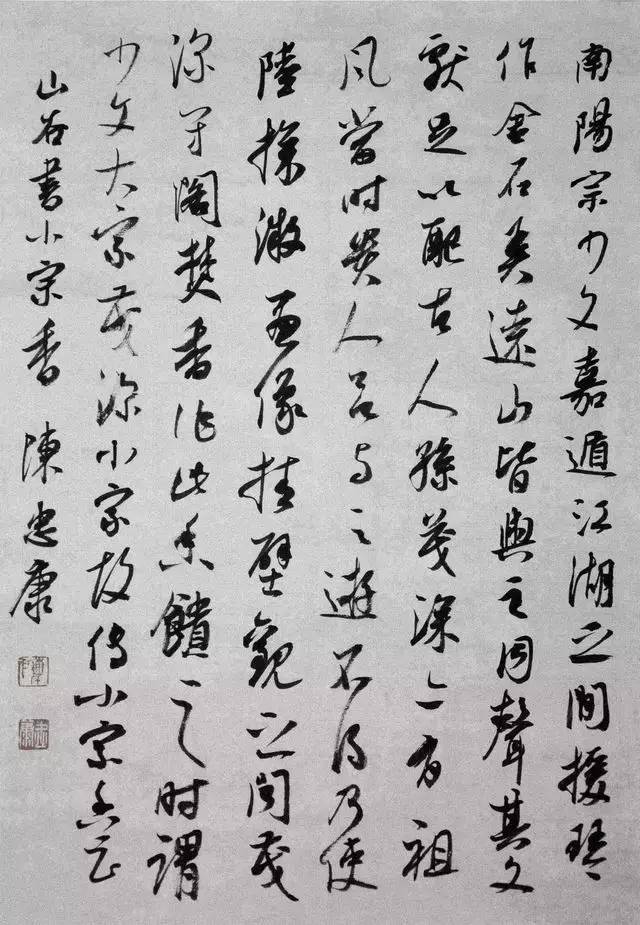 南陽宗少文嘉遁江湖之間援琴
作金石弄遠山皆與之同聲其文
獻足以配古人孫茂深亦有祖
風當時貴人與之遊不得乃使
陸探微畫像挂壁觀之聞茂
深閉閣焚香作此香饋之時謂
少文大宗茂深小宗故傳小宗香云
山谷書小宗香 陳忠康